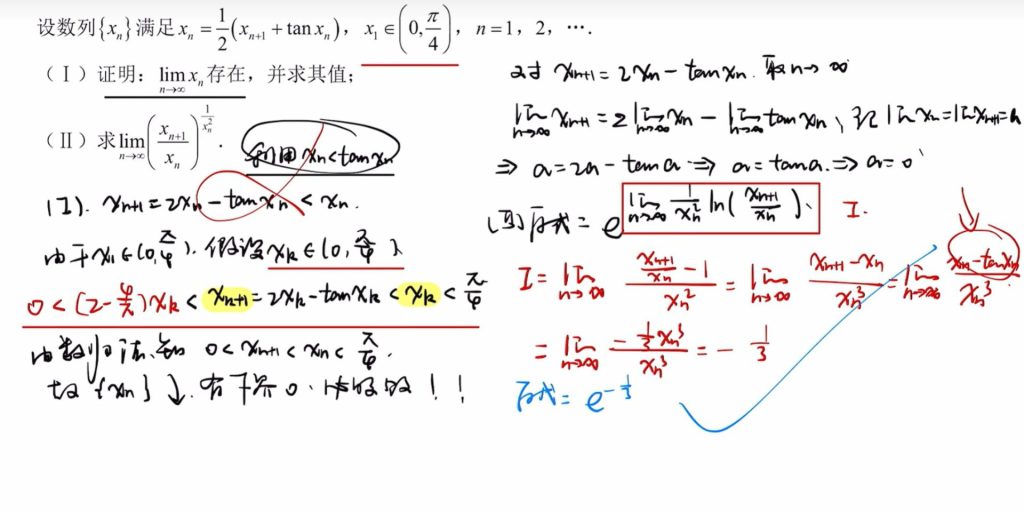 设数列{xₙ}满足xₙ=1/2(xₙ₊₁+tan xₙ),x₁∈(0,π/4),n=1,2,….
(Ⅰ)证明:lim(n→∞) xₙ存在,并求其值;
(Ⅱ)求lim(n→∞)(xₙ₊₁/xₙ)^(1/xₙ²).
利用 xₙ<tanxₙ
(I). xₙ₊₁=2xₙ-tanxₙ<xₙ.
由于x₁∈(0,π/4).假设xₖ∈(0,π/4)
0<(2-4/π)xₖ<xₙ₊₁=2xₖ-tanxₖ<xₖ<π/4
由数归法,知 0<xₙ₊₁<xₙ<π/4.
故{xₙ}↓.有下界0. !!
对 xₙ₊₁=2xₙ-tanxₙ.取n→∞
lim(n→∞) xₙ₊₁=2lim(n→∞) xₙ-lim(n→∞) tanxₙ、记lim xₙ=lim xₙ₊₁=a
⇒ a=2a-tana ⇒ a=tana.⇒ a=0
(Ⅱ)原式=e^(lim(n→∞) 1/xₙ² ln(xₙ₊₁/xₙ)). I.
I=lim(n→∞) (xₙ₊₁/xₙ-1)/xₙ²=lim(n→∞) (xₙ₊₁-xₙ)/xₙ³=lim(n→∞) (xₙ-tanxₙ)/xₙ³
=lim(n→∞) (-1/3xₙ³)/xₙ³=-1/3
原式=e^(-1/3)